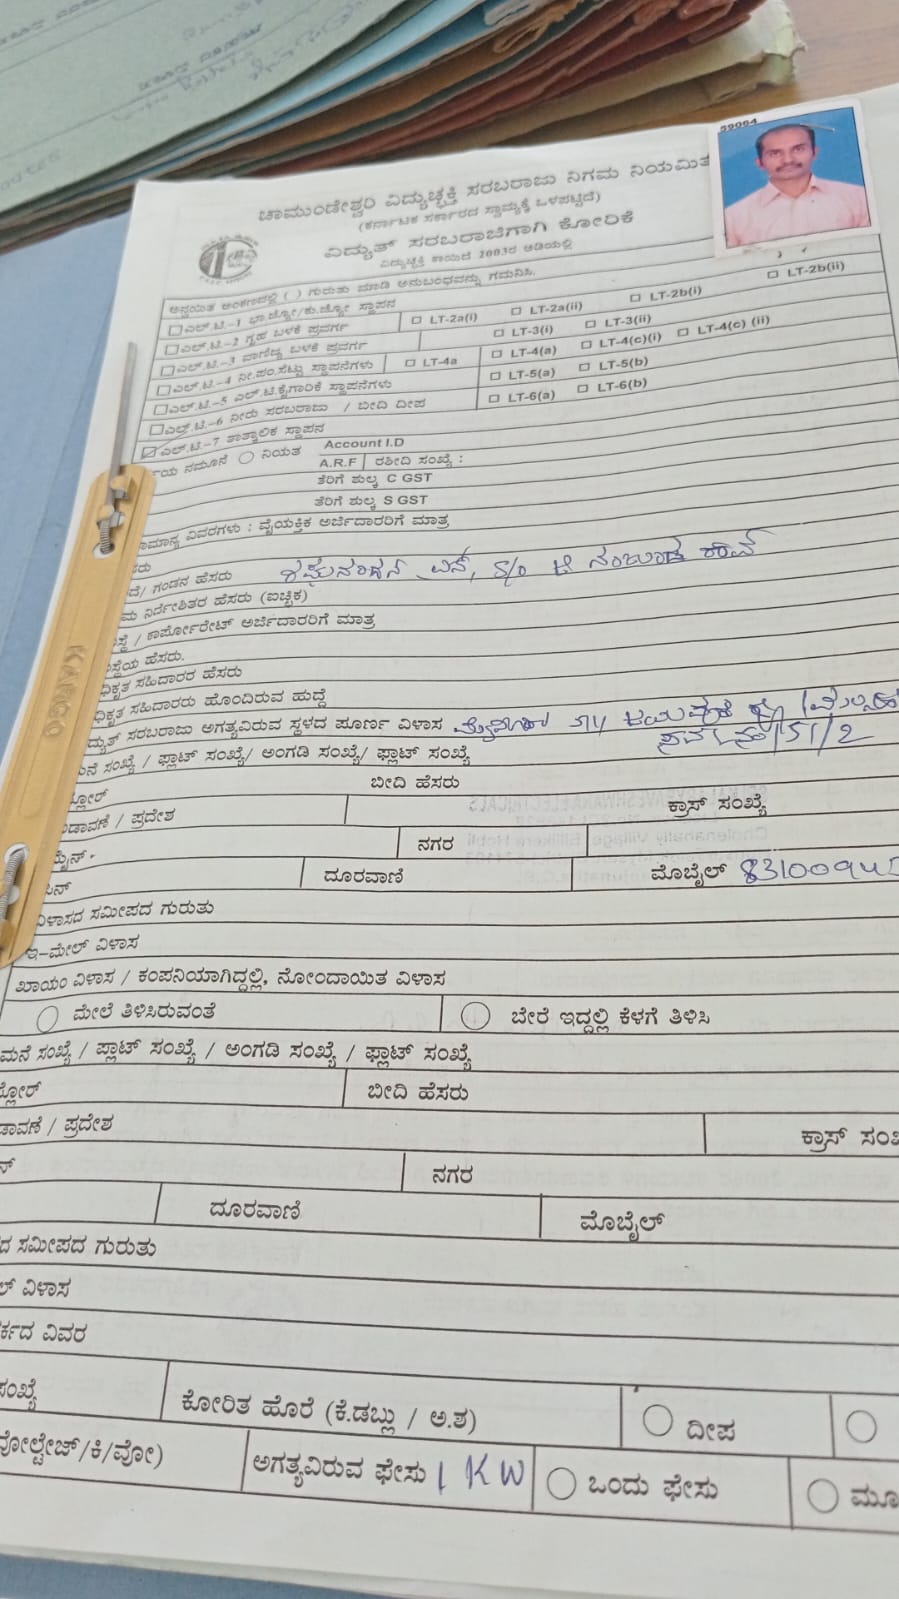 39064
ಚಾಮುಂಡೇಶ್ವರಿ ವಿದ್ಯುಚ್ಛಕ್ತಿ ಸರಬರಾಜು ನಿಗಮ ನಿಯಮಿತ
(ಕರ್ನಾಟಕ ಸರ್ಕಾರದ ಸ್ವಾಮ್ಯಕ್ಕೆ ಒಳಪಟ್ಟಿದೆ)
ವಿದ್ಯುತ್ ಸರಬರಾಜಿಗಾಗಿ ಕೋರಿಕೆ
ವಿದ್ಯುಚ್ಛಕ್ತಿ ಕಾಯಿದೆ 2003ರ ಅಡಿಯಲ್ಲಿ
ಅನ್ವಯಿತ ಅಂಕಣದಲ್ಲಿ ( ) ಗುರುತು ಮಾಡಿ ಅನುಬಂಧವನ್ನು ಗಮನಿಸಿ.
ಎಲ್.ಟಿ.-1 ಭಾ.ಜ್ಯೋ/ಕು.ಜ್ಯೋ ಸ್ಥಾಪನ
ಎಲ್.ಟಿ.-2 ಗೃಹ ಬಳಕೆ ಪ್ರವರ್ಗ LT-2a(i) LT-2a(ii) LT-2b(i) LT-2b(ii)
ಎಲ್.ಟಿ.-3 ವಾಣಿಜ್ಯ ಬಳಕೆ ಪ್ರವರ್ಗ LT-3(i) LT-3(ii)
ಎಲ್.ಟಿ.-4 ನೀ.ಪಂ.ಸೆಟ್ಟು ಸ್ಥಾಪನೆಗಳು LT-4a LT-4(a) LT-4(c)(i) LT-4(c) (ii)
ಎಲ್.ಟಿ.-5 ಎಲ್.ಟಿ.ಕೈಗಾರಿಕೆ ಸ್ಥಾಪನೆಗಳು LT-5(a) LT-5(b)
ಎಲ್.ಟಿ.-6 ನೀರು ಸರಬರಾಜು / ಬೀದಿ ದೀಪ LT-6(a) LT-6(b)
ಎಲ್.ಟಿ.-7 ತಾತ್ಕಾಲಿಕ ಸ್ಥಾಪನ
ನಮೂನೆ ನಿಯತ Account I.D
A.R.F ರಶೀದಿ ಸಂಖ್ಯೆ :
ತೆರಿಗೆ ಶುಲ್ಕ C GST
ತೆರಿಗೆ ಶುಲ್ಕ S GST
ಾಮಾನ್ಯ ವಿವರಗಳು : ವೈಯಕ್ತಿಕ ಅರ್ಜಿದಾರರಿಗೆ ಮಾತ್ರ
ಸರು
ದೆ/ ಗಂಡನ ಹೆಸರು S/o
ಮ ನಿರ್ದೇಶಿತರ ಹೆಸರು (ಐಚ್ಛಿಕ)
ಸ್ಥೆ / ಕಾರ್ಪೋರೇಟ್ ಅರ್ಜಿದಾರರಿಗೆ ಮಾತ್ರ
ಸ್ಥೆಯ ಹೆಸರು.
ಧಿಕೃತ ಸಹಿದಾರರ ಹೆಸರು
ಧಿಕೃತ ಸಹಿದಾರರು ಹೊಂದಿರುವ ಹುದ್ದೆ
ದ್ಯುತ್ ಸರಬರಾಜು ಅಗತ್ಯವಿರುವ ಸ್ಥಳದ ಪೂರ್ಣ ವಿಳಾಸ
151/2
ನೆ ಸಂಖ್ಯೆ / ಫ್ಲಾಟ್ ಸಂಖ್ಯೆ/ ಅಂಗಡಿ ಸಂಖ್ಯೆ/ ಫ್ಲಾಟ್ ಸಂಖ್ಯೆ
್ಲೋರ್ ಬೀದಿ ಹೆಸರು
ಡಾವಣೆ / ಪ್ರದೇಶ ಕ್ರಾಸ್ ಸಂಖ್ಯೆ
ಮೈನ್. ನಗರ
ಪಿನ್ ದೂರವಾಣಿ ಮೊಬೈಲ್ 83100945
ವಿಳಾಸದ ಸಮೀಪದ ಗುರುತು
ಇ-ಮೇಲ್ ವಿಳಾಸ
ಖಾಯಂ ವಿಳಾಸ / ಕಂಪನಿಯಾಗಿದ್ದಲ್ಲಿ, ನೋಂದಾಯಿತ ವಿಳಾಸ
ಮೇಲೆ ತಿಳಿಸಿರುವಂತೆ ಬೇರೆ ಇದ್ದಲ್ಲಿ ಕೆಳಗೆ ತಿಳಿಸಿ
ಮನೆ ಸಂಖ್ಯೆ / ಪ್ಲಾಟ್ ಸಂಖ್ಯೆ / ಅಂಗಡಿ ಸಂಖ್ಯೆ / ಫ್ಲಾಟ್ ಸಂಖ್ಯೆ
್ಲೋರ್ ಬೀದಿ ಹೆಸರು
ಡಾವಣೆ / ಪ್ರದೇಶ ಕ್ರಾಸ್ ಸಂಖ
ನ್ ನಗರ
ದೂರವಾಣಿ ಮೊಬೈಲ್
ದ ಸಮೀಪದ ಗುರುತು
ಲ್ ವಿಳಾಸ
ರ್ಕದ ವಿವರ
ಸಂಖ್ಯೆ ಕೋರಿತ ಹೊರೆ (ಕೆ.ಡಬ್ಲು / ಅ.ಶ) ದೀಪ
ವೋಲ್ಟೇಜ್/ಕಿ/ವೋ) ಅಗತ್ಯವಿರುವ ಫೇಸು 1 KW ಒಂದು ಫೇಸು ಮೂ
KANGO